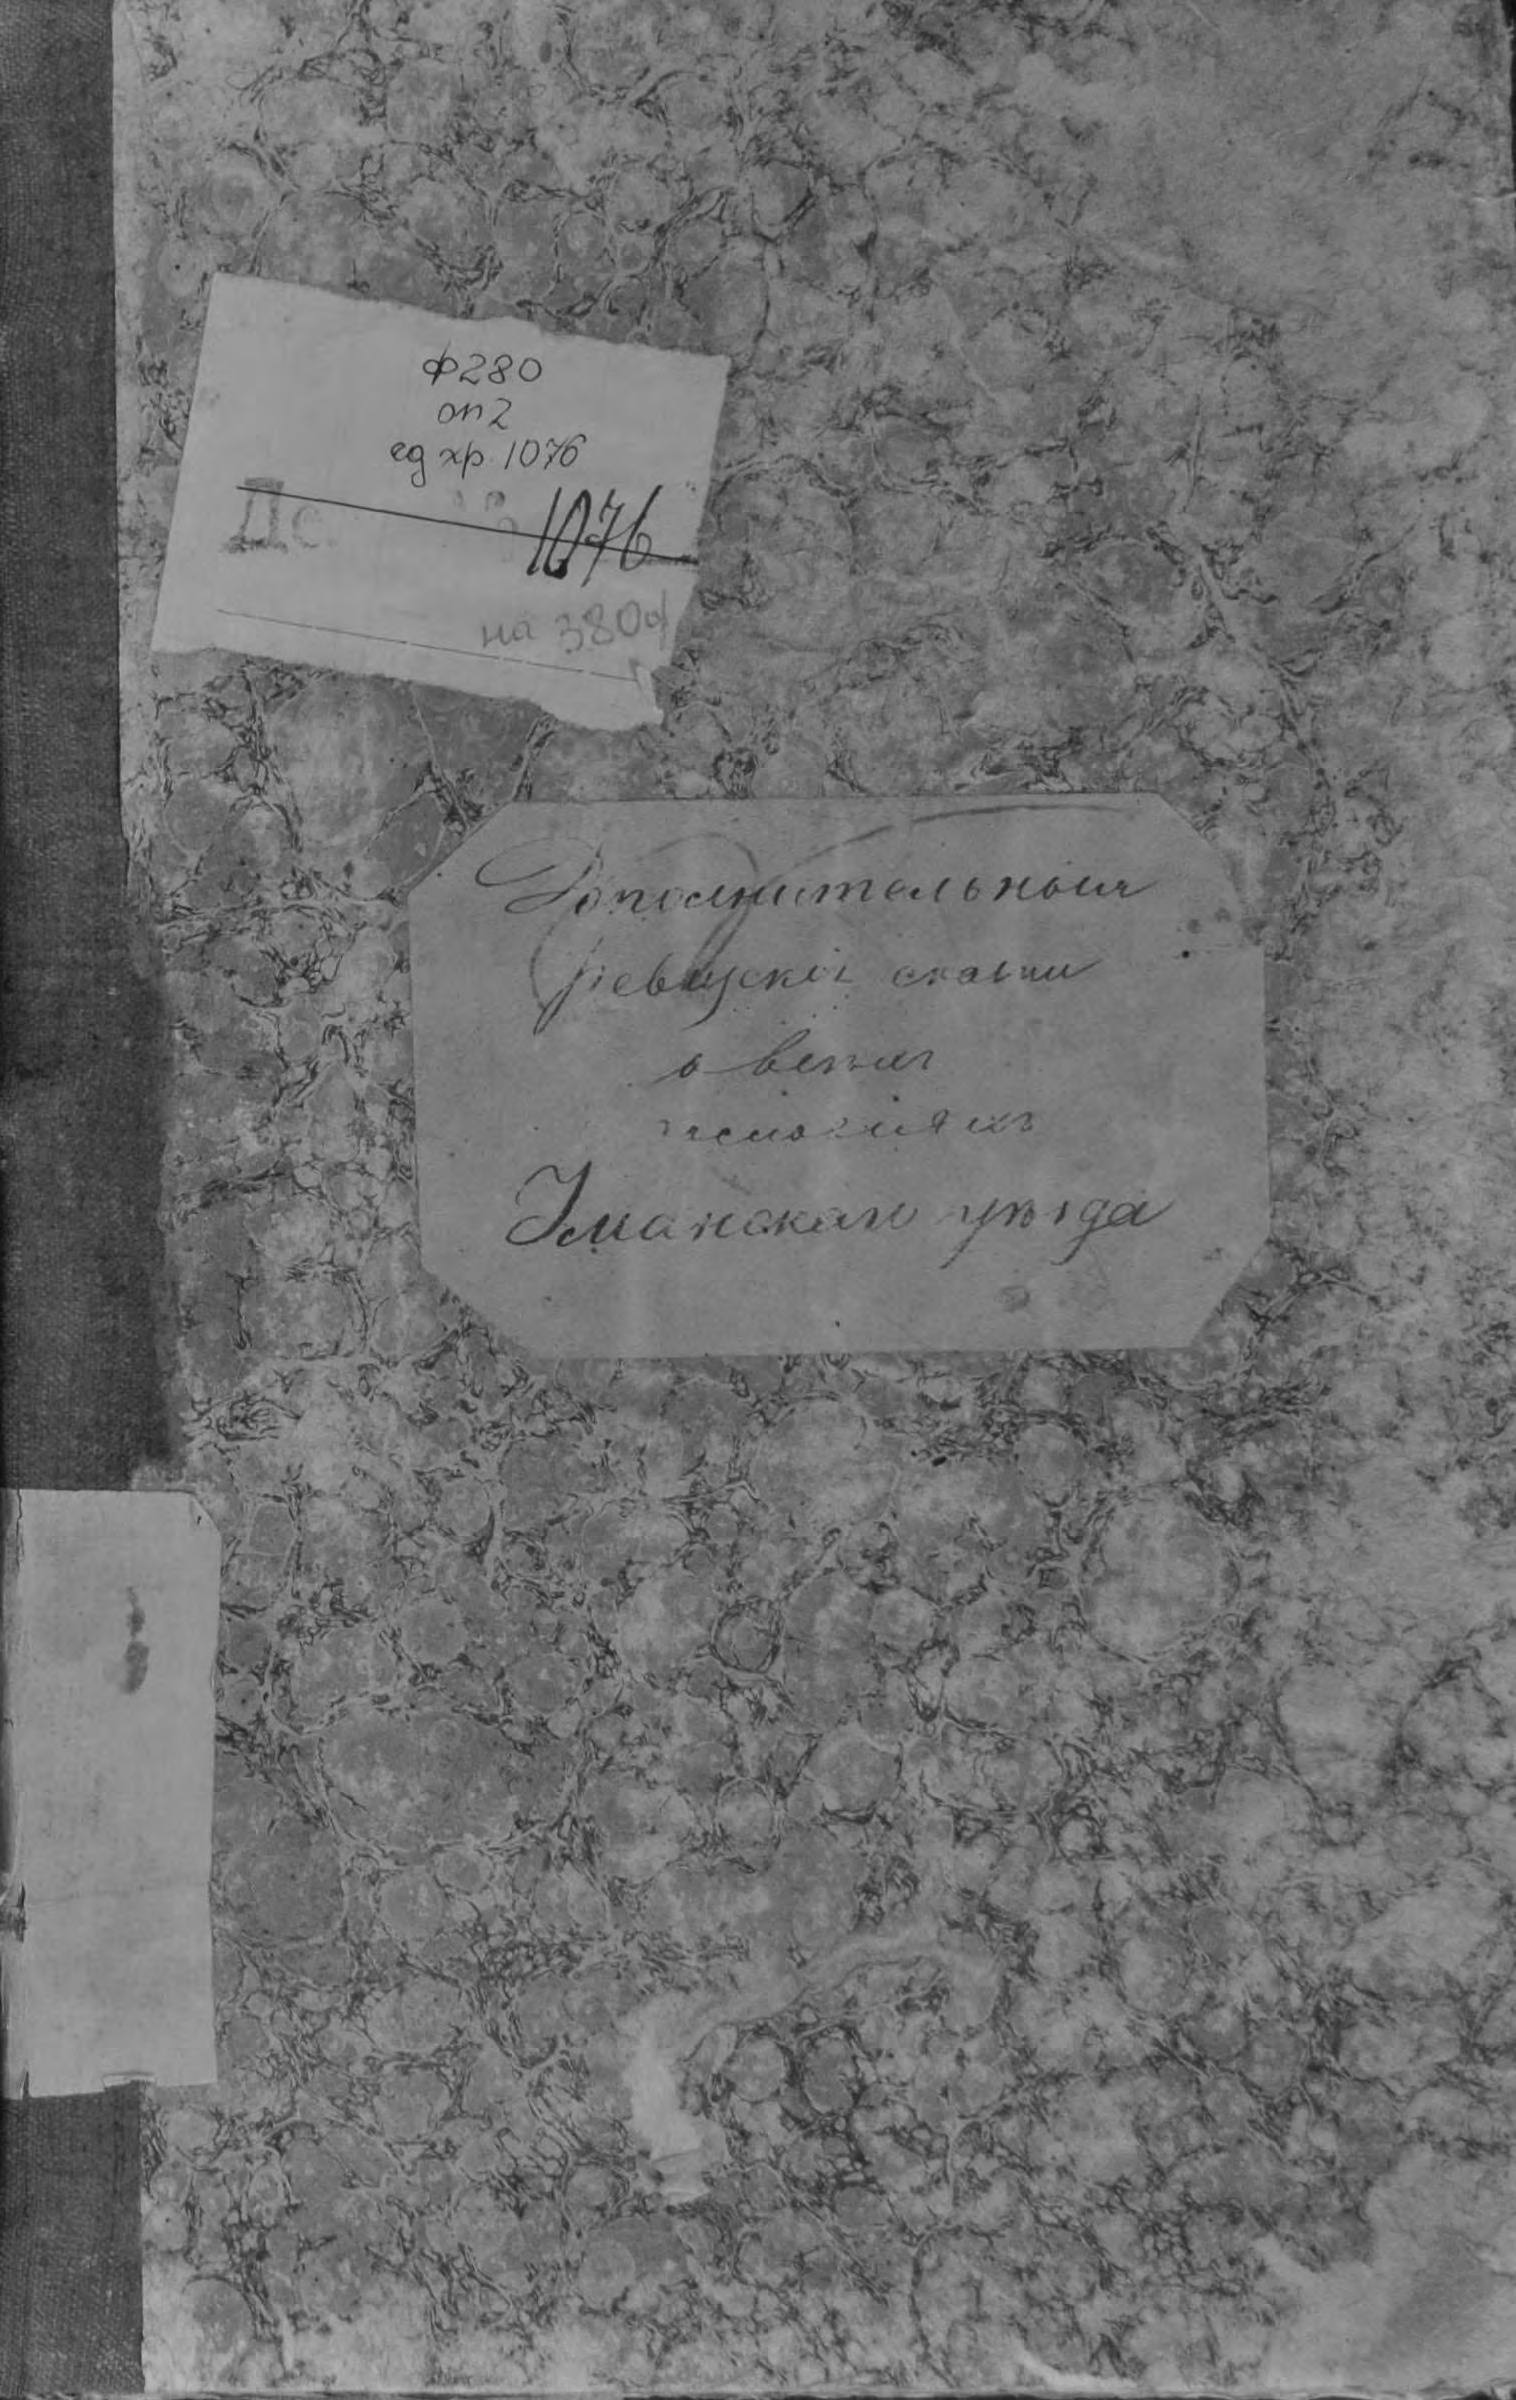 ф280
оп2
ед хр. 1076
1076
на 380
Дополнительныя
ревизскія сказки
о всѣхъ
Уманскаго уѣзда